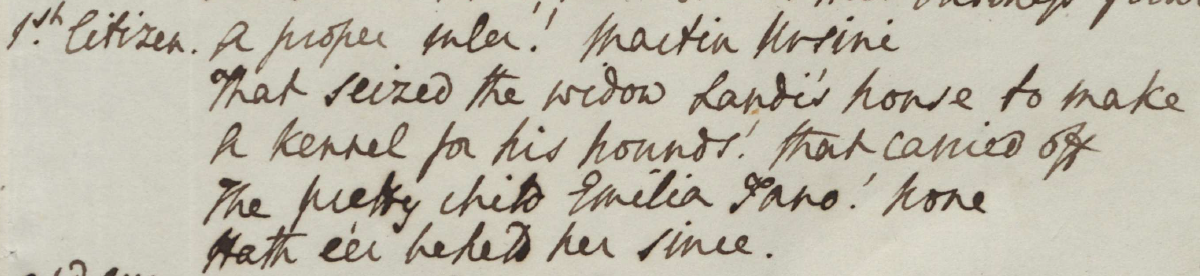 1st. Citizen. A proper ruler! Martin Ursini
That seized the widow Landi's house to make
A kennel for his hounds! that carried off
The pretty child Emilia Fano! None
Hath e'er beheld her since.